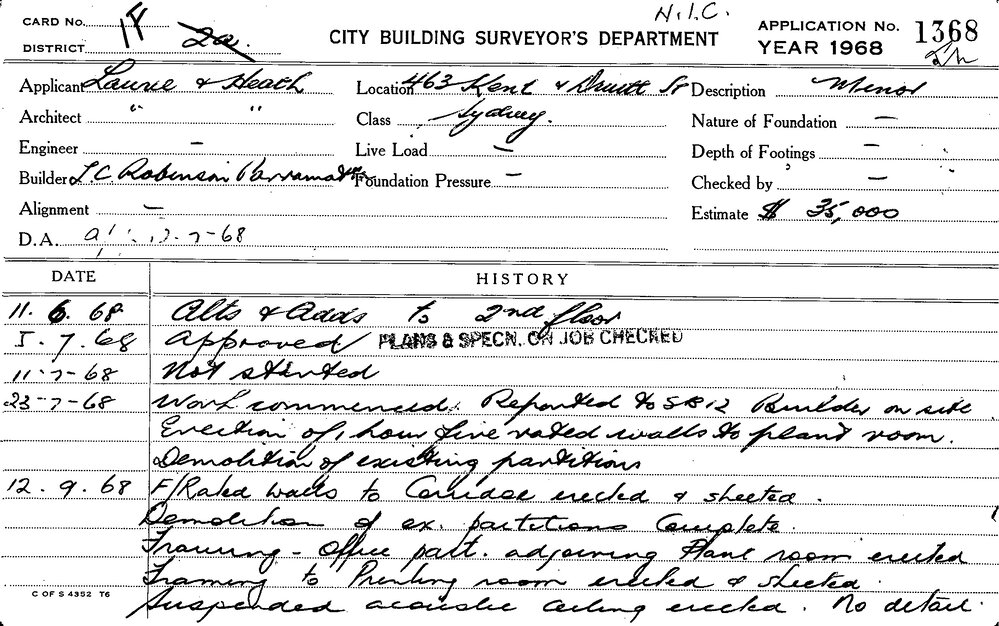 CARD No. 1F N.I.C. APPLICATION No. 1368
DISTRICT 2a. CITY BUILDING SURVEYOR'S DEPARTMENT YEAR 1968
Applicant Laurie & Heath Location 463 Kent & Druitt St Description Minor
Architect " " Class Sydney. Nature of Foundation —
Engineer — Live Load — Depth of Footings —
Builder L.C Robinson Parramatta Foundation Pressure — Checked by —
Alignment — Estimate $ 35,000
D.A. 7-68
DATE HISTORY
11. 6. 68 Alts & Adds to 2nd floor
5. 7. 68 Approved PLANS & SPECN. ON JOB CHECKED
11-7-68 Not started
23-7-68 Work commenced. Reported to Builder on site
Erection of 1 hour fire rated walls to plant room.
Demolition of existing partitions
12. 9. 68 F/Rated walls to Corridor erected & sheeted.
Demolition of ex. partitions Complete.
Framing - Office part. adjoining Plant room erected
Framing to Printing room erected & sheeted.
C OF S 4352 T6 Suspended acoustic ceiling erected. No detail.